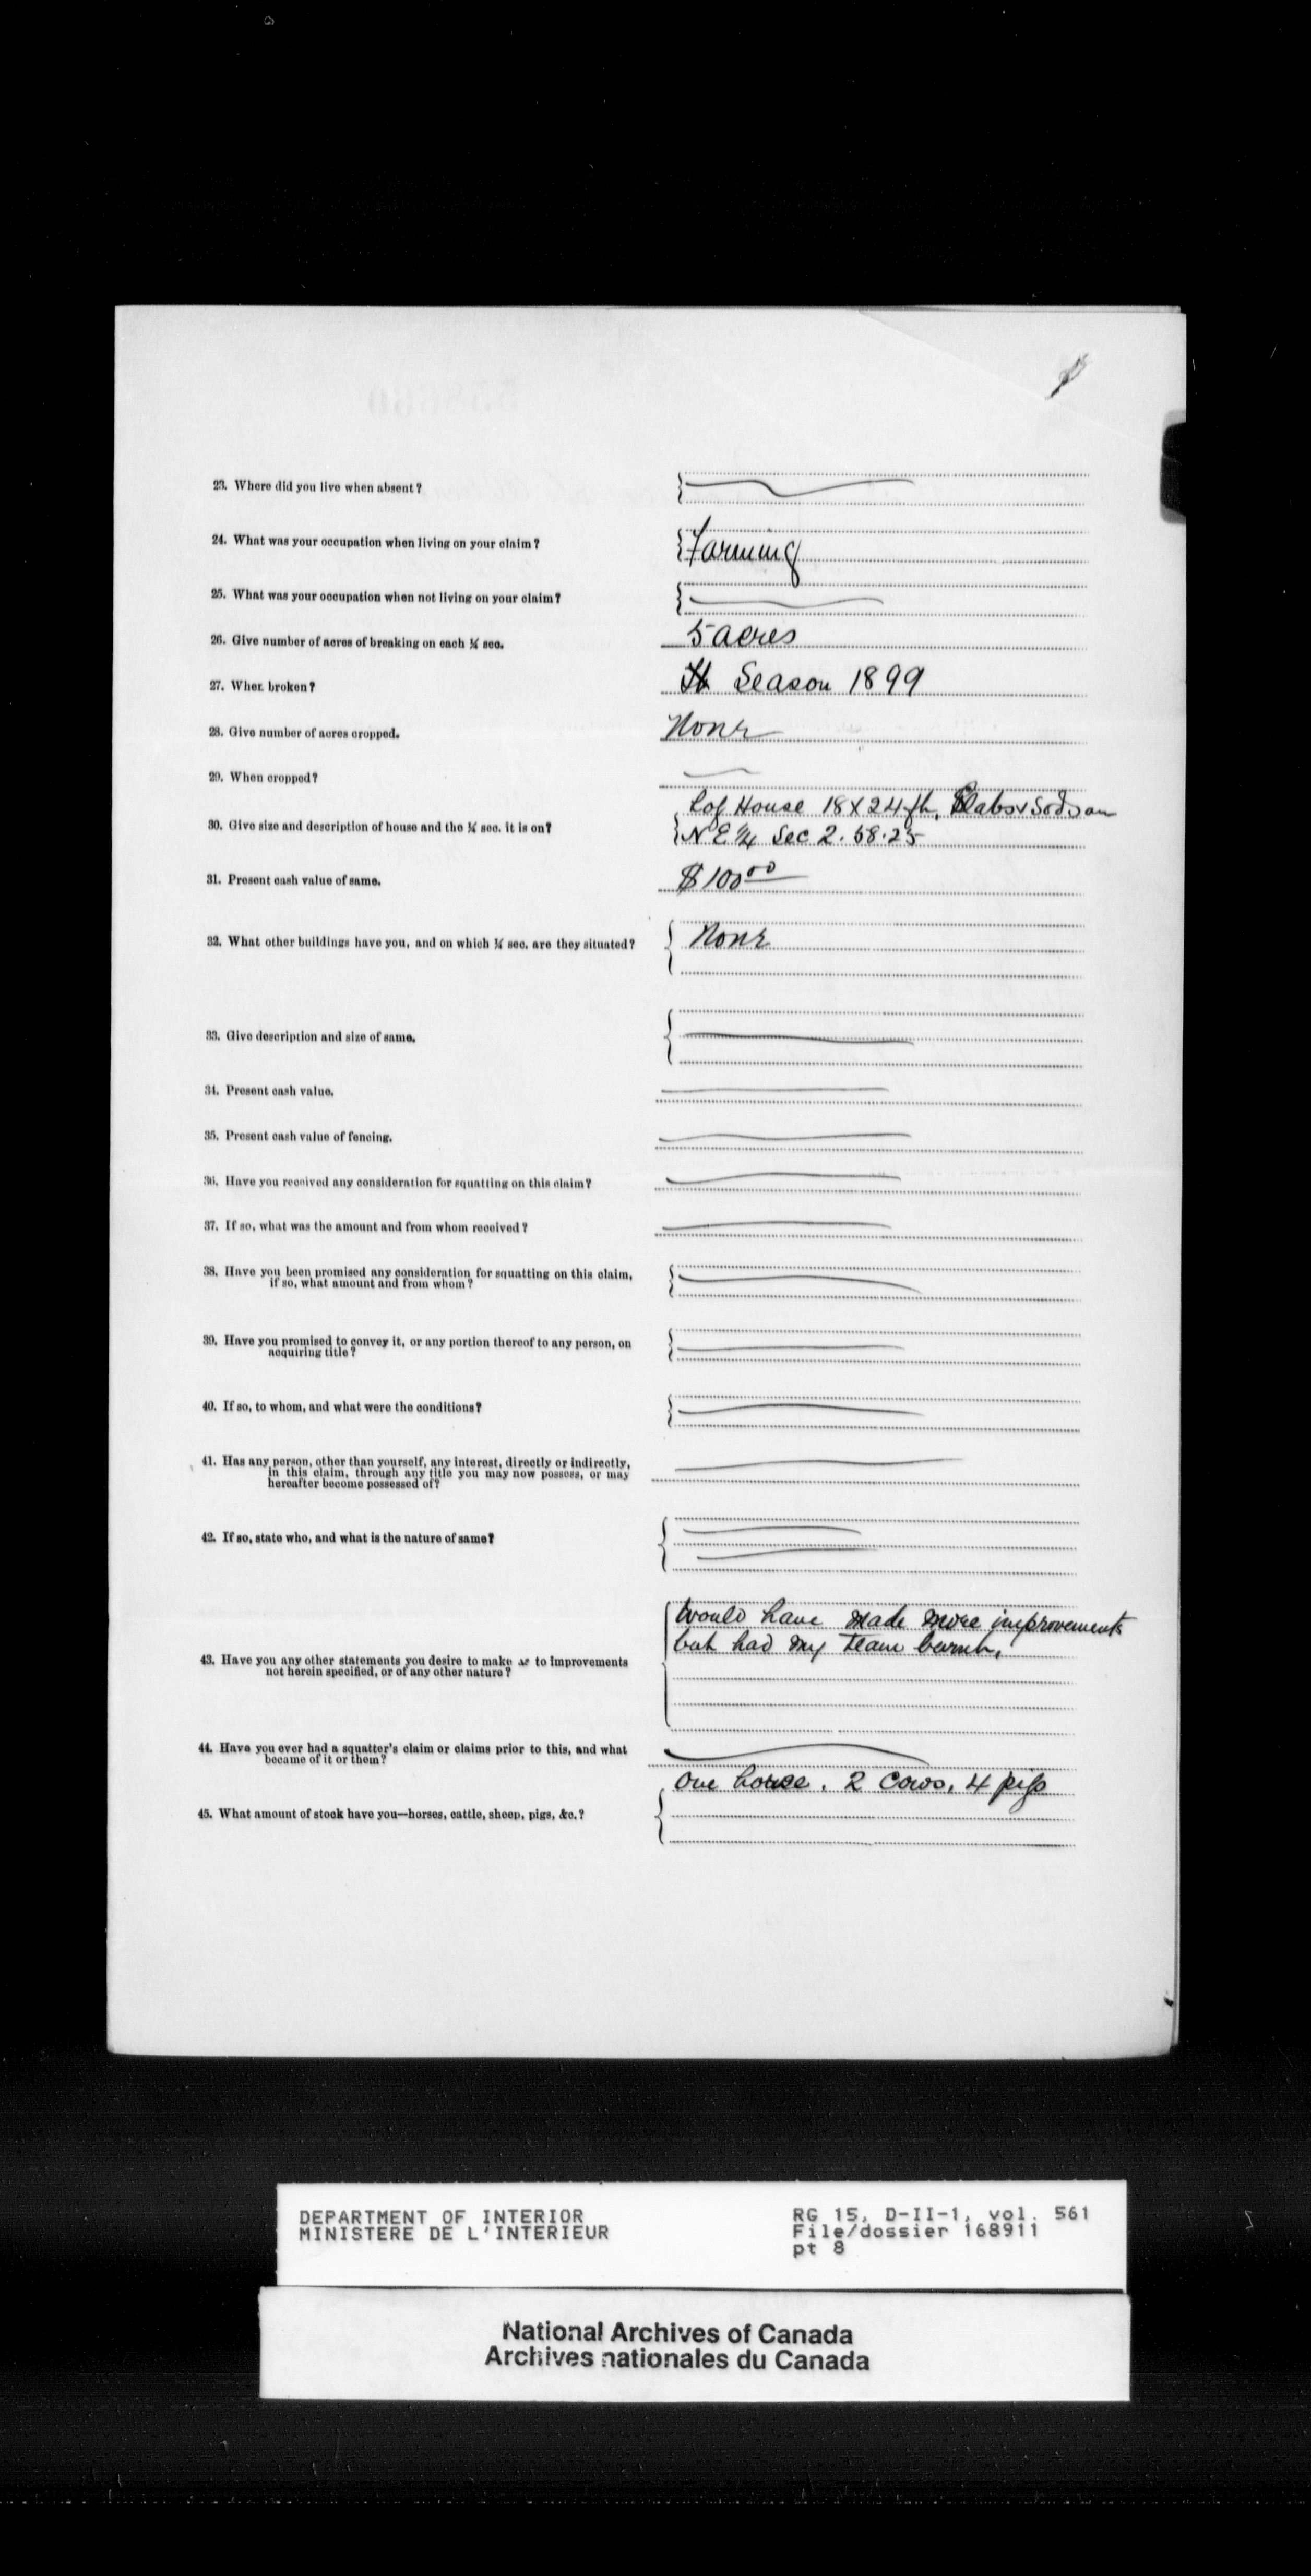 23. Where did you live when absent?
24. What was your occupation when living on your claim?
Farming
25. What was your occupation when not living on your claim?
26. Give number of acres of breaking on each ¼ sec.
5 acres
27. When broken?
Season 1899
28. Give number of acres cropped.
None
29. When cropped?
30. Give size and description of house and the ¼ sec. it is on?
Log House 18 X 24 ft, Slabs & Sods on
NE ¼ Sec 2. 58. 25
31. Present cash value of same.
$100.00
32. What other buildings have you, and on which ¼ sec. are they situated?
None
33. Give description and size of same.
34. Present cash value.
35. Present cash value of fencing.
36. Have you received any consideration for squatting on this claim?
37. If so, what was the amount and from whom received?
38. Have you been promised any consideration for squatting on this claim,
if so, what amount and from whom?
39. Have you promised to convey it, or any portion thereof to any person, on
acquiring title?
40. If so, to whom, and what were the conditions?
41. Has any person, other than yourself, any interest, directly or indirectly,
in this claim, through any title you may now possess, or may
hereafter become possessed of?
42. If so, state who, and what is the nature of same?
Would have made more improvements
but had my team burnt.
43. Have you any other statements you desire to make as to improvements
not herein specified, or of any other nature?
44. Have you ever had a squatter's claim or claims prior to this, and what
became of it or them?
One horse, 2 Cows, 4 pigs
45. What amount of stock have you—horses, cattle, sheep, pigs, &c.?
DEPARTMENT OF INTERIOR
MINISTERE DE L'INTERIEUR
RG 15, D-II-1, vol. 561
File/dossier 168911
pt 8
National Archives of Canada
Archives nationales du Canada